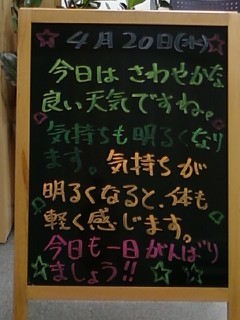 4月20日(水)
今日は さわやかな
良い天気ですね。
気持ちも明るくなり
ます。気持ちが
明るくなると、体も
軽く感じます。
今日も一日がんばり
ましょう!!